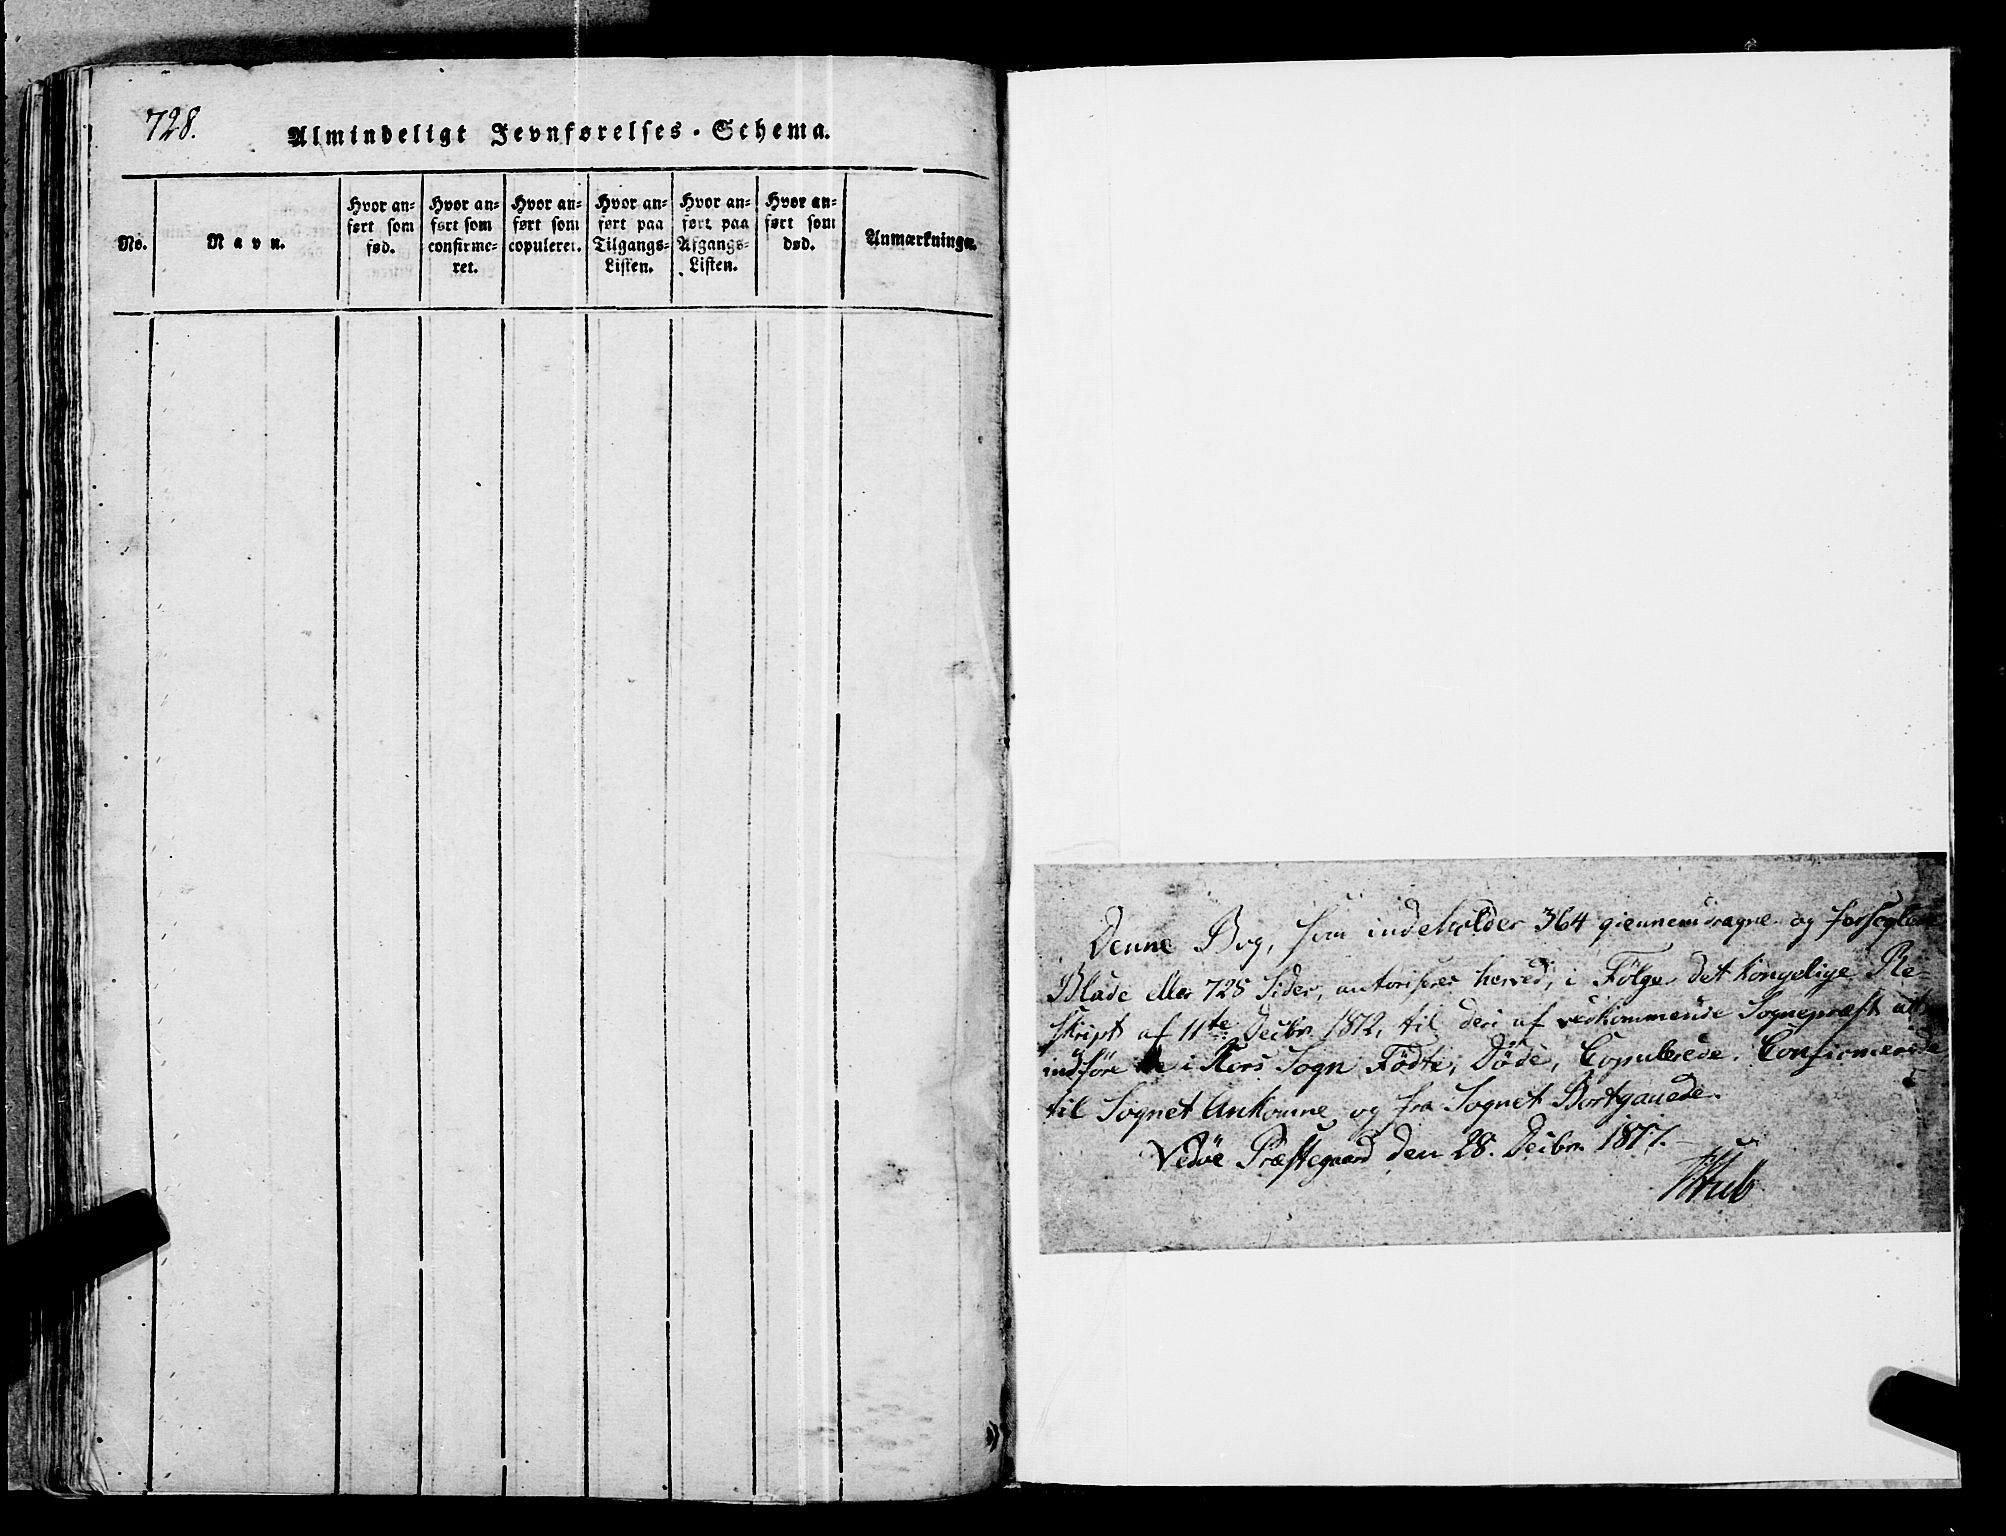 728.
Almindeligt Jevnførelses-Schema.
No.
Navn.
Hvor an-
ført som
fød.
Hvor an-
ført som
confirme-
ret.
Hvor an-
ført som
copuleret.
Hvor an-
ført paa
Tilgangs-
Listen.
Hvor an-
ført paa
Afgangs-
Listen.
Hvor an-
ført som
død.
Anmærkninger.
Denne Bog, som indeholder 364 giennemdragne og forseglede
Blade eller 728 Sider, autoriseres herved, i Følge det kongelige Re-
skript af 11te Decbr. 1812, til deri af vedkommende Sognepræst at
indføre de i Kors Sogn Fødte, Døde, Copulerede, Confirmerede
til Sognet Ankomne og fra Sognet Bortgaaede.
Vedøe Præstegaard den 28. Decbr. 1817.